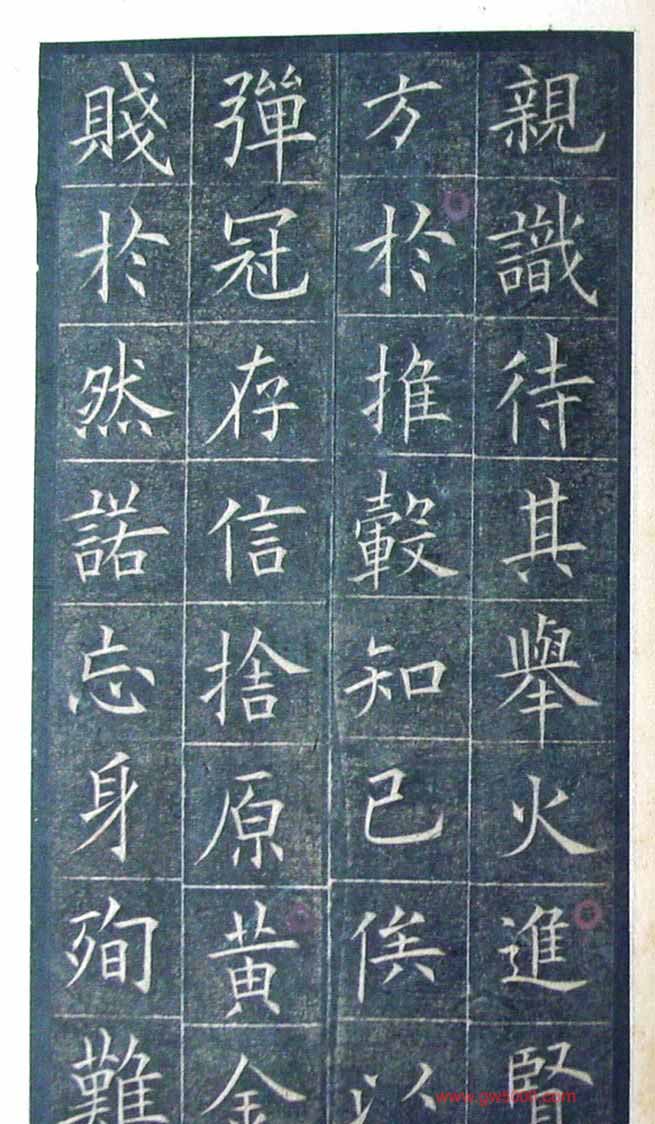 親識待其舉火進賢
方於推轂知己俟以
彈冠存信捨原黃金
賤於然諾忘身殉難
www.gw5000.com